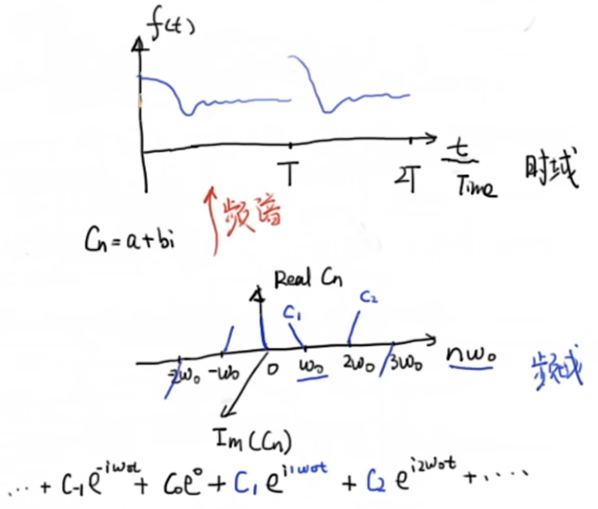 f(t)
T 2T t Time 时域
频谱
Cn=a+bi
Real Cn
C1 C2
-2ω0 -ω0 0 ω0 2ω0 3ω0 nω0 频域
Im(Cn)
...+ C-1e^-iω0t + C0e^0 + C1e^i1ω0t + C2e^i2ω0t + ....